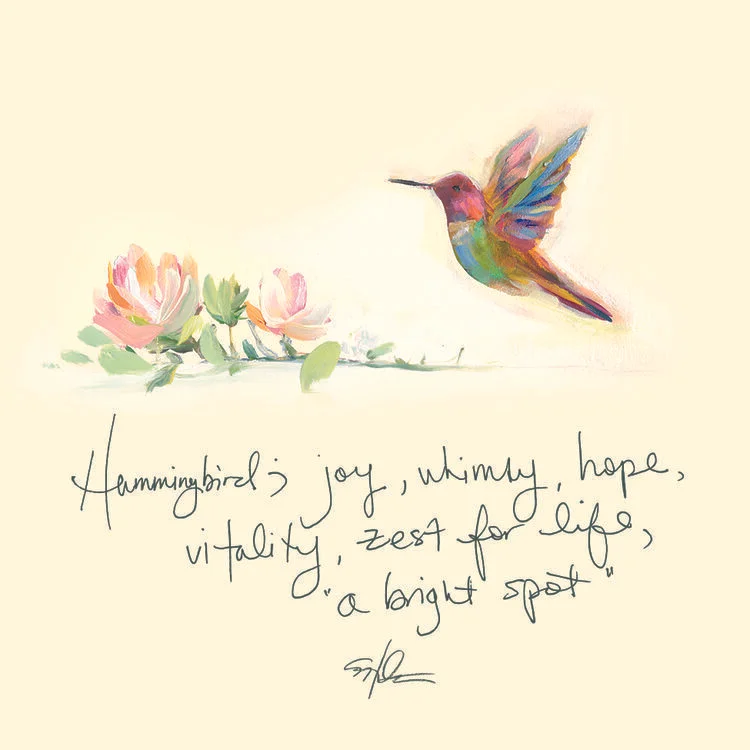 Hummingbird; joy, whimsy, hope,
vitality, zest for life,
"a bright spot"